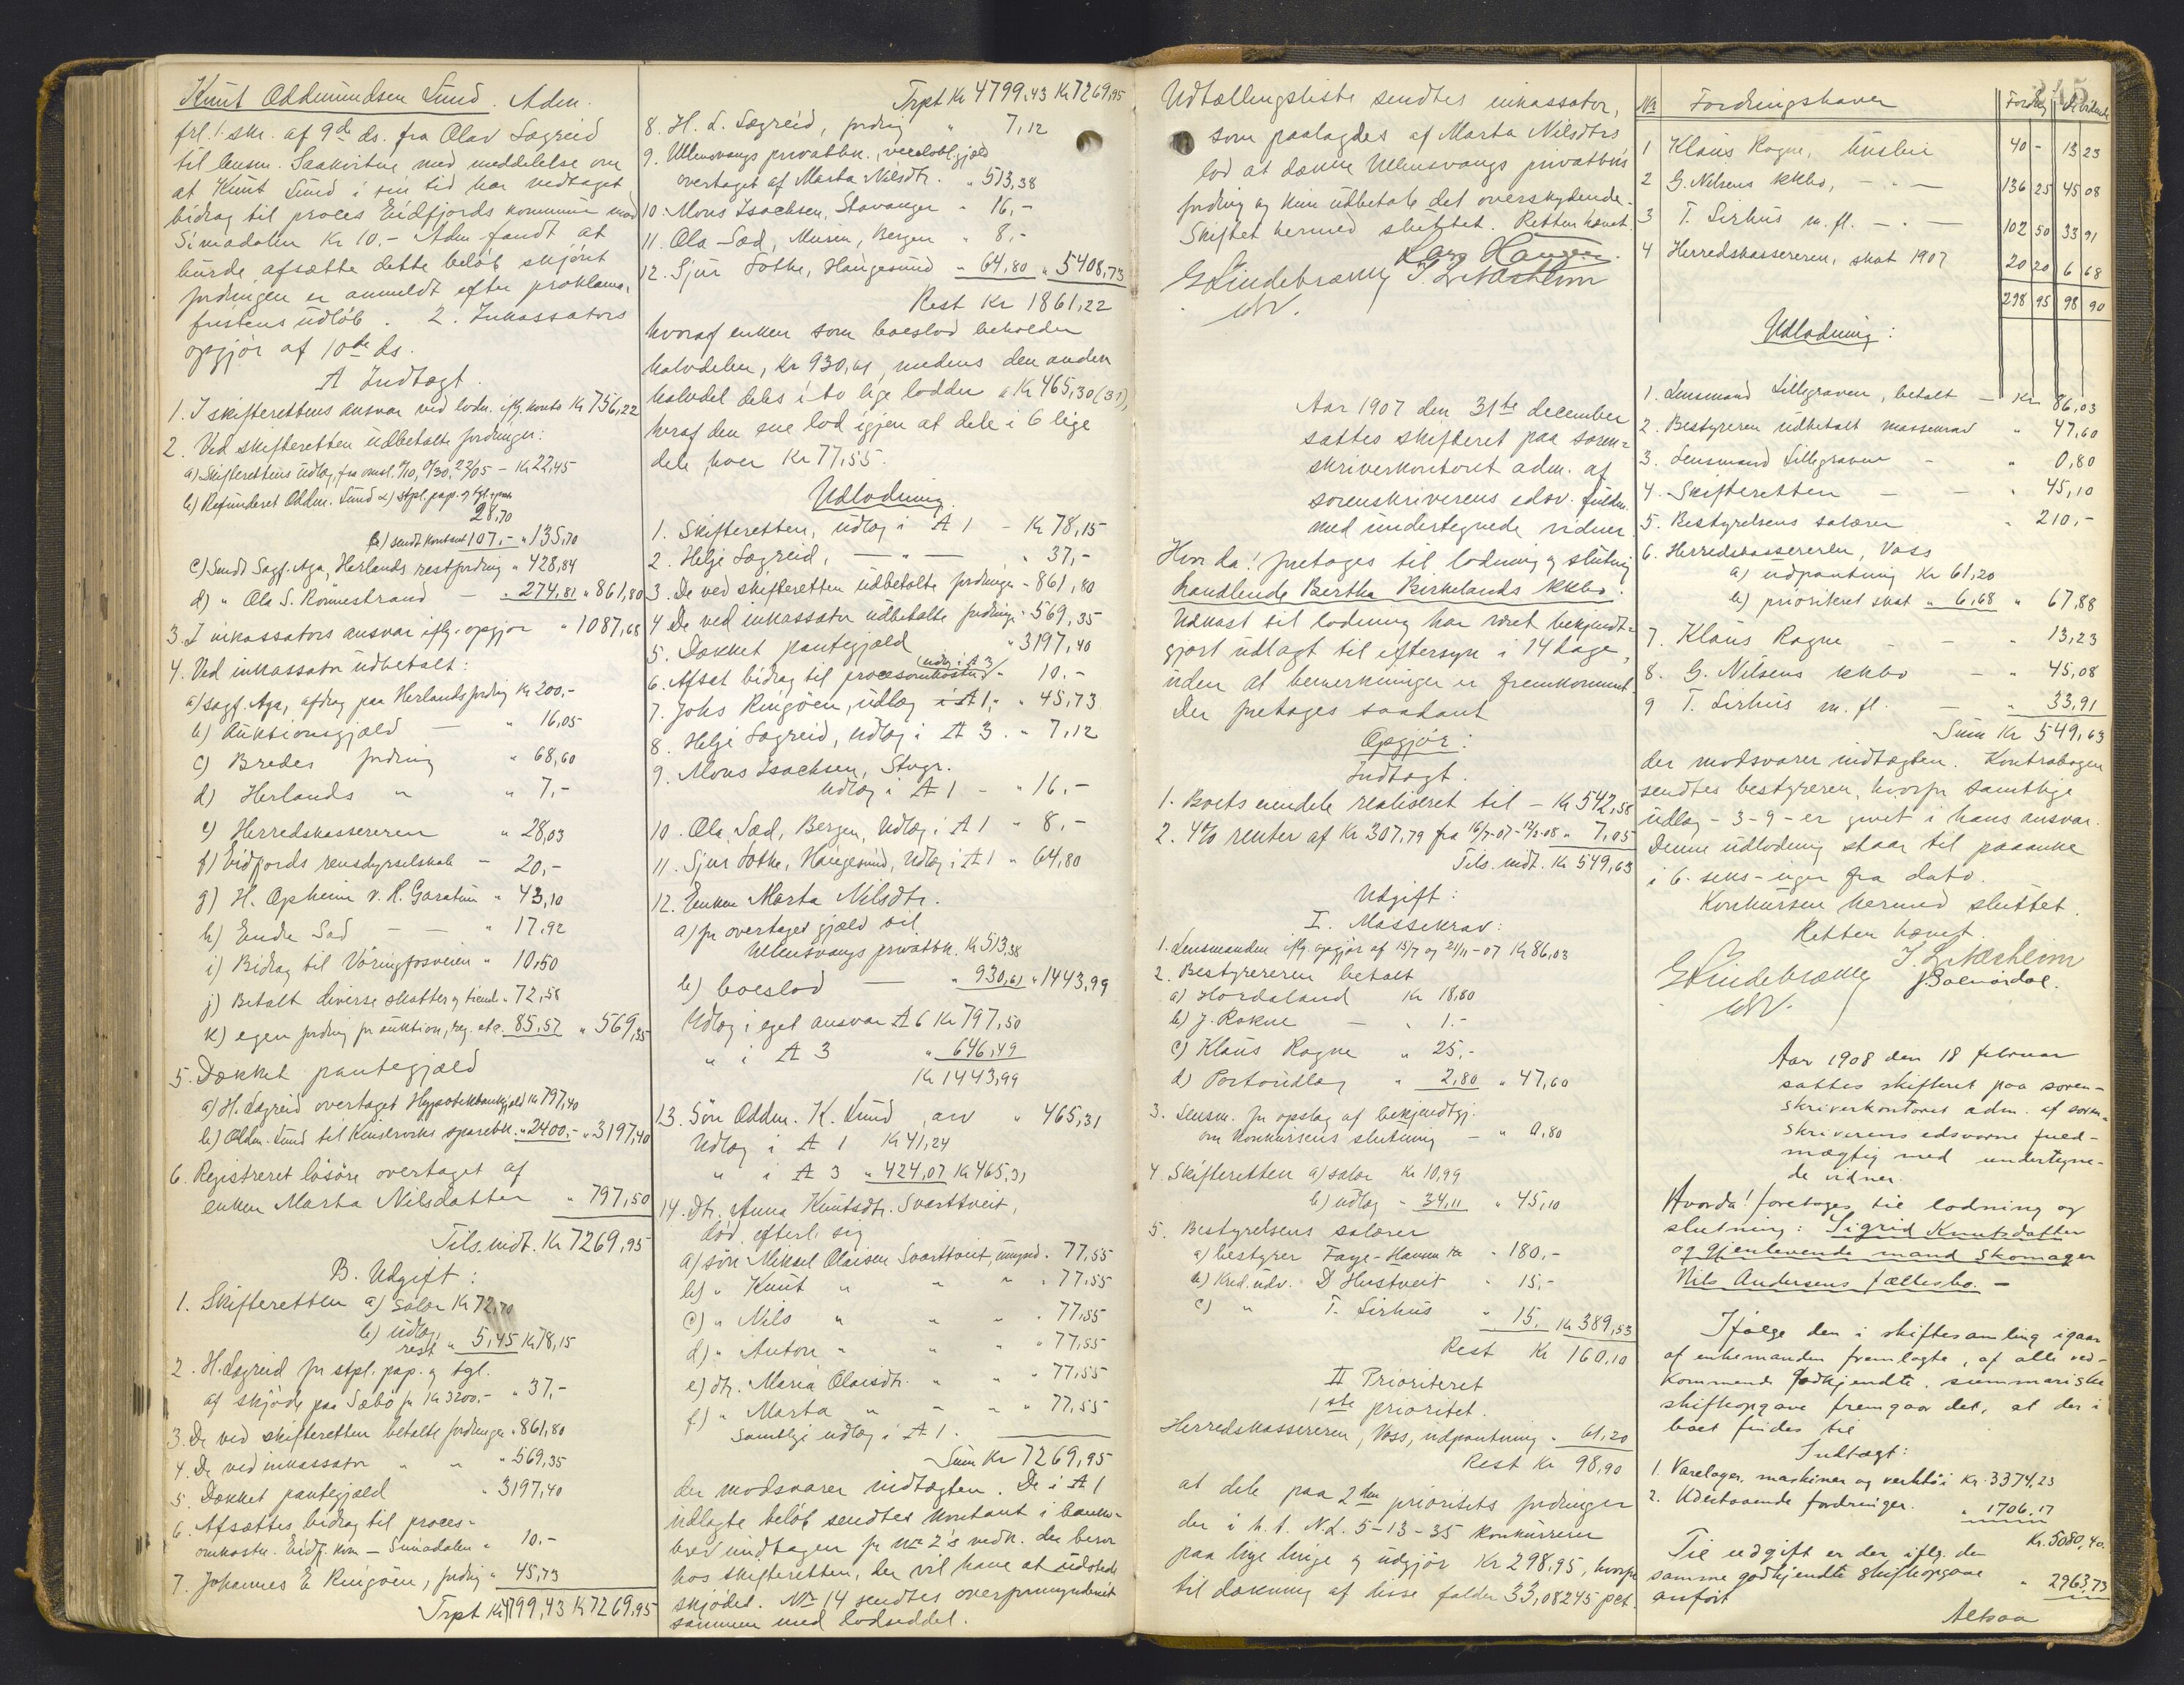 Knut Oddmundsen Lund. Adm.
frl. 1. skr. af 9de ds. fra Olav Sægreid
til lensm. med meddelelse om
at Knut Lund i sin tid har vedtaget
bidrag til proces Eidfjords kommune mod
Simadalen Kr 10.- Adm. fandt at
burde afsætte dette beløb skjønt
fordringen er anmeldt efter proklama-
fristens udløb. 2. Inkassators
opgjør af 10de ds.
A Indtægt.
1. I skifterettens ansvar ved lodn. iflg. konto Kr 756,22
2. Ved skifteretten udbetalte fordringer:
a) Skifterettens udlæg, fra omsl. - Kr 22,45
b) Refunderet Oddm. Lund α) stpl. pap. og tgl.
28,70
β) sendt kontant 107,- " 135,70
c) Sendt Sagf. Aga, Herlands restfordring " 428,84
d) " Ola S. Ronnestrand - " 274,81 " 861,80
3. I inkassators ansvar iflg. opgjør " 1087,68
4. Ved inkassator udbetalt:
a) sagf. Aga, afdrag paa Herlands fordring Kr 200,-
b) Auktionsgjæld - " 16,05
c) Bredes fordring " 68,60
d) Herlands " " 7,-
e) Herredskassereren " 28,03
f) Eidfjords rensdyrselskab - 20,-
g) H. Opheim v. H. Garatun " 43,10
h) Endre Sæd - - " 17,92
i) Bidrag til Vøringfosveien " 10,50
j) Betalt diverse skatter og tiende " 72,58
k) egen fordring for auktion, reg. etc. 85,57 " 569,35
5. Dækket pantegjæld
a) H. Sægreid overtaget Hypothekbankgjæld Kr 797,40
b) Oddm. Lund til Kinserviks sparebk. " 2400,- " 3197,40
6. Registreret løsøre overtaget af
enken Marta Nilsdatter " 797,50
Tils. indt. Kr 7269,95
B. Udgift:
1. Skifteretten a) salær Kr 72,70
b) udlæg,
rest " 5,45 Kr 78,15
2. H. Sægreid for stpl. pap. og tgl.
af skjøde paa Sæbø for Kr 3200,- " 37,-
3. De ved skifteretten betalte fordringer " 861,80
4. De ved inkassator " " " 569,35
5. Dækket pantegjæld " 3197,40
6. Afsættes bidrag til proces-
omkostn. Eidfj. kom - Simadalen " 10.-
7. Johannes E Ringøen, fordring " 45,73
Trpt Kr 4799,43 Kr 7269,95
Trpt Kr 4799,43 Kr 7269,95
8. H. L. Sægreid, fordring " 7,12
9. Ullensvangs privatbk., vexelobl. gjæld
overtaget af Marta Nilsdtr. " 513,38
10. Mons Isachsen, Stavanger " 16,-
11. Ola Sæd, Murer, Bergen " 8,-
12. Sjur Lothe, Haugesund " 64,80 " 5408,73
Rest Kr 1861,22
hvoraf enken som boeslod beholder
halvdelen, Kr 930,61, medens den anden
halvdel deles i to lige lodder a Kr 465,30 (31),
heraf den ene lod igjen at dele i 6 lige
dele hver Kr 77,55.
Udlodning
1. Skifteretten, udlæg i A 1 - Kr 78,15
2. Helje Sægreid, - " - " 37,-
3. De ved skifteretten udbetalte fordringer - 861,80
4. De ved inkassator udbetalte fordringer " 569,35
5. Dækket pantegjæld " 3197,40
6. Afsat bidrag til procesomkostn. (udlæg i A 3) - 10.-
7. Johs Ringøen, udlæg i A 1, " 45,73
8. Helje Sægreid, udlæg i A 3. " 7,12
9. Mons Isachsen, Stvgr.
udlæg i A 1 - " 16.-
10. Ola Sæd, Bergen, Udlæg i A 1 " 8,-
11. Sjur Lothe, Haugesund, Udlæg i A 1 " 64,80
12. Enken Marta Nilsdtr.
a) for overtaget gjæld til
Ullensvangs privatbk. Kr 513,38
b) boeslod - " 930,61 " 1443,99
Udlæg i eget ansvar A 6 Kr 797,50
" i A 3 " 646,49
Kr 1443,99
13. Søn Oddm. K. Lund, arv " 465,31
Udlæg i A 1 Kr 41,24
" i A 3 " 424,07 Kr 465,31
14. Dtr. Anna Knutsdtr. Svarttveit,
død, efterl. sig
a) søn Mikael Olaisen Svarttveit, umynd. " 77,55
b) " Knut " " " " 77,55
c) " Nils " " " 77,55
d) " Anton " " " " 77,55
e) dtr. Maria Olaisdtr. " " " 77,55
f) " Marta " " " " 77,55
Samtlige udlæg i A 1.
Sum Kr 7269,95
der modsvarer indtægten. De i A 1
udlagte beløb sendtes kontant i banko-
brev undtagen for No 2's vedk. der beror
hos skifteretten, der vil have at udstede
skjødet. No 14 sendtes overformynderiet
sammen med lodseddel.
Udtællingsliste sendtes inkassator,
som paalagdes af Marta Nilsdtrs
lod at dække Ullensvangs privatbks
fordring og kun udbetale det overskydende.
Skiftet hermed sluttet. Retten hævet.
G Lindebrække
Aar 1907 den 31te december
sattes skifteret paa soren-
skriverkontoret adm. af
sorenskriverens edsv. fuldm.
med undertegnede vidner
Hvor da! foretoges til lodning og slutning
handlende Bertha Birkelands kkbo.
Udkast til lodning har været bekjendt-
gjort udlagt til eftersyn i 14 dage,
uden at bemerkninger er fremkommet.
Der foretoges saadant
Opgjør:
Indtægt.
1. Boets eiendele realiseret til - Kr 542,58
2. 4% renter af Kr 307,79 fra 16/7-07 - 12/2-08 " 7,05
Tils. indt. Kr 549,63
Udgift:
I. Massekrav:
1. Lensmanden iflg. opgjør af 15/7 og 21/11-07 Kr 86,03
2. Bestyreren betalt
a) Hordaland Kr 18,80
b) J. Rokne - " 1.-
c) Klaus Rogne " 25,-
d) Portoudlæg " 2,80 " 47,60
3. Lensm. for opslag af bekjendtgj.
om konkursens slutning - " 0,80
4. Skifteretten a) salær Kr 10,99
b) udlæg - 34,11 " 45,10
5. Bestyrelsens salærer
a) bestyrer Faye-Hansen Kr " 180,-
b) Kred. udv. D Hustveit " 15,-
c) " T. Lirhus " 15,- Kr 389,53
Rest Kr 160,10
II Prioriteret
1ste prioritet.
Herredskassereren, Voss, udpantning " 61,20
Rest Kr 98,90
at dele paa 2den prioritets fordringer
der i h. t. N.L. 5-13-35 konkurrerer
paa lige linje og udgjør Kr 298,95, hvorfor
til dækning af disse falder 33,08245 pct.
No Fordringshaver Fordring Dividende
1 Klaus Rogne, husleie 40 - 13 23
2 G. Nilsens kkbo, - " - 136 25 45 08
3 T. Lirhus m. fl. - " - 102 50 33 91
4 Herredskassereren, skat 1907 20 20 6 68
298 95 98 90
Udlodning:
1. Lensmand Lillegraven, betalt - Kr 86,03
2. Bestyreren udbetalt massekrav " 47,60
3. Lensmand Lillegraven - " 0,80
4. Skifteretten - - " 45,10
5. Bestyrelsens salærer " 210,-
6. Herredskassereren, Voss
a) udpantning Kr 61,20
b) prioriteret skat " 6,68 " 67,88
7. Klaus Rogne - " 13,23
8. G. Nilsens kkbo - " 45,08
9 T. Lirhus m. fl. - " 33,91
Sum Kr 549,63
der modsvarer indtægten. Kontrabogen
sendtes bestyreren, hvorfor samtlige
udlæg - 3 - 9 - er givet i hans ansvar.
Denne udlodning staar til paaanke
i 6 - seks - uger fra dato.
Konkursen hermed sluttet.
Retten hævet.
G Lindebrække
Aar 1908 den 18 februar
sattes skifteret paa soren-
skriverkontoret adm. af soren-
skriverens edsvorne fuld-
mægtig med undertegne-
de vidner.
Hvorda! foretoges til lodning og
slutning: Sigrid Knutsdatter
og gjenlevende mand Skomager
Nils Andersens fællesbo. -
Ifølge den i skiftesamling igaar
af enkemanden fremlagte, af alle ved-
kommende godkjendte, summariske
skifteopgave fremgaar det, at der i
boet findes til
Indtægt:
1. Varelager, maskiner og verktøi Kr. 3374,23
2. Udestaaende fordringer. " 1706,17
Kr. 5080,40
Til udgift er der iflg. den
samme godkjendte skifteopgave
anført " 2963,73
Altsaa